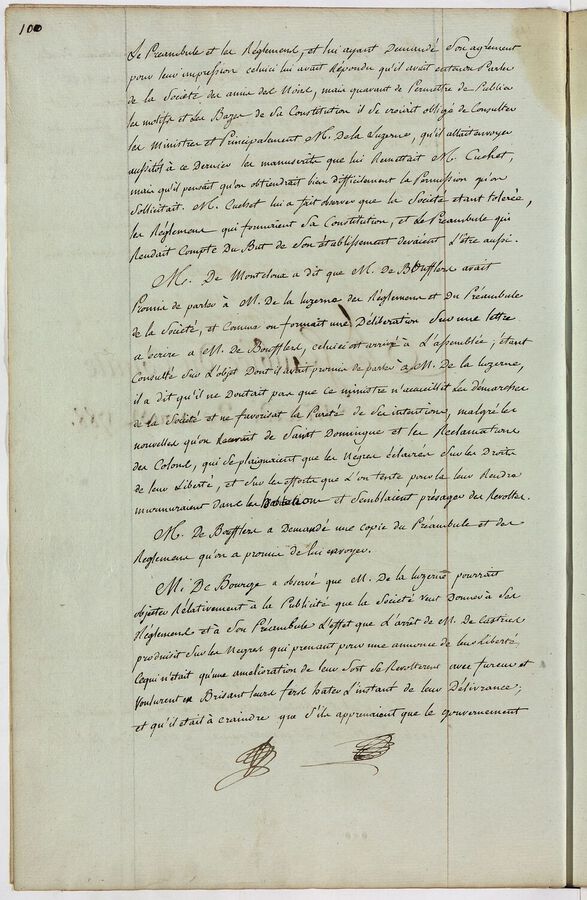 100
le Préambule et les Réglemens, et lui ayant Demandé Son agrément
pour leur impression celuici lui avait Répondu qu'il avait entendu Parler
de la Société des amis des Noirs, mais qu'avant de Permettre de Publier
les motifs et les Bazes de Sa Constitution il Se croirait obligé de Consulter
les Ministres et Principalement M. De la Luzerne, qu'il allait envoyer
aussitôt à ce Dernier les manuscrits que lui Remettait M. Cuchet,
mais qu'il pensait qu'on obtiendrait bien difficilement la Permission qu'on
Sollicitait. M. Cuchet lui a fait observer que la Société étant tolérée,
les Réglemens qui formaient Sa Constitution, et le Préambule qui
Rendait Compte Du But de Son établissement devaient L'être aussi.
M. De Montcloux a dit que M. De Boufflers avait
Promis de parler à M. De la luzerne des Réglemens et Du Préambule
de la Société, et Comme on formait une Délibération Sur une lettre
a écrire a M. De Boufflers, celuici est arrivé à L'assemblée; étant
Consulté Sur L'objet Dont il avait promis de parler à M. De la luzerne,
il a dit qu'il ne Doutait pas que ce ministre n'accueillit les démarches
de la Société et ne favorisat la Pureté de Ses intentions, malgré les
nouvelles qu'on Recevait de Saint Domingue et les Réclamations
des Colons, qui Se plaignaient que les Négres éclairés Sur les Droits
de leur Liberté, et Sur les efforts que L'on tente pour la leur Rendre
murmuraient dans les habitations et Semblaient présager des Révoltes.
M. De Boufflers a Demandé une copie du Préambule et des
Réglemens qu'on a promis de lui envoyer.
M. De Bourge a observé que M. De la luzerne pourrait
objecter Rélativement à la Publicité que la Société veut Donner à Ses
Réglemens et à Son Préambule L'effet que L'arrêt de M. De Castries
produisit Sur les Négres qui prenant pour une annonce de leur Liberté
Cequi n'était qu'une amelioration de leur Sort Se Révolterent avec fureur et
Voulurent en Brisant leurs fers hater L'instant de leur Délivrance;
et qu'il était à craindre que S'ils apprenaient que le gouvernement